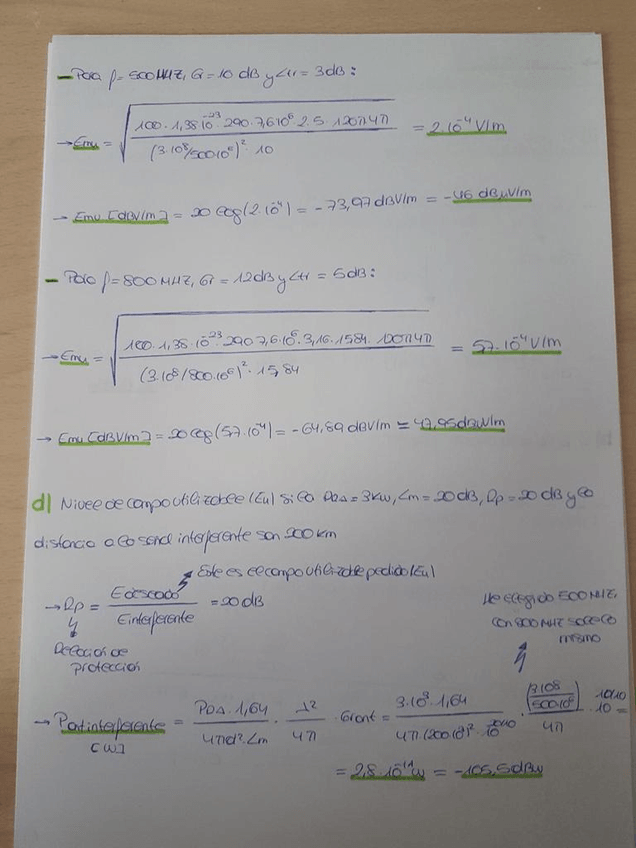 - Para f=500MHz, G=10 dB y Ltr=3dB:
→ Emu = √(100·1,38·10^-23·290·7,6·10^6·2·5·120π4π / (3·10^8/500·10^6)^2·10) = 2·10^-4 V/m
→ Emu [dBV/m] = 20 log(2·10^-4) = -73,97dBV/m = -46 dBμV/m
- Para f=800MHz, G=12dB y Ltr=5dB:
→ Emu = √(100·1,38·10^-23·290·7,6·10^6·3,16·15,84·120π4π / (3·10^8/800·10^6)^2·15,84) = 57·10^-4 V/m
→ Emu [dBV/m] = 20log(57·10^-4) = -64,89 dBV/m = 47,95dBμV/m
d) Nivel de campo utilizable (Eu) si la PRA=3kw, Lm=20dB, Rp=20 dB y la
distancia a la señal interferente son 200km
Este es el campo utilizable pedido (Eu)
→ Rp = Edeseado / Einterferente = 20 dB
Relación de
protección
He elegido 500MHz,
con 800MHz sale lo
mismo
→ Pant interferente [W] = PRA·1,64 / 4πd²·Lm · λ² / 4π · Gant = 3·10^3·1,64 / 4π(200·10^3)²·10^20/10 · (3·10^8/500·10^6) / 4π · 10^10/10 =
= 2,8·10^-11 W = -105,5dBW